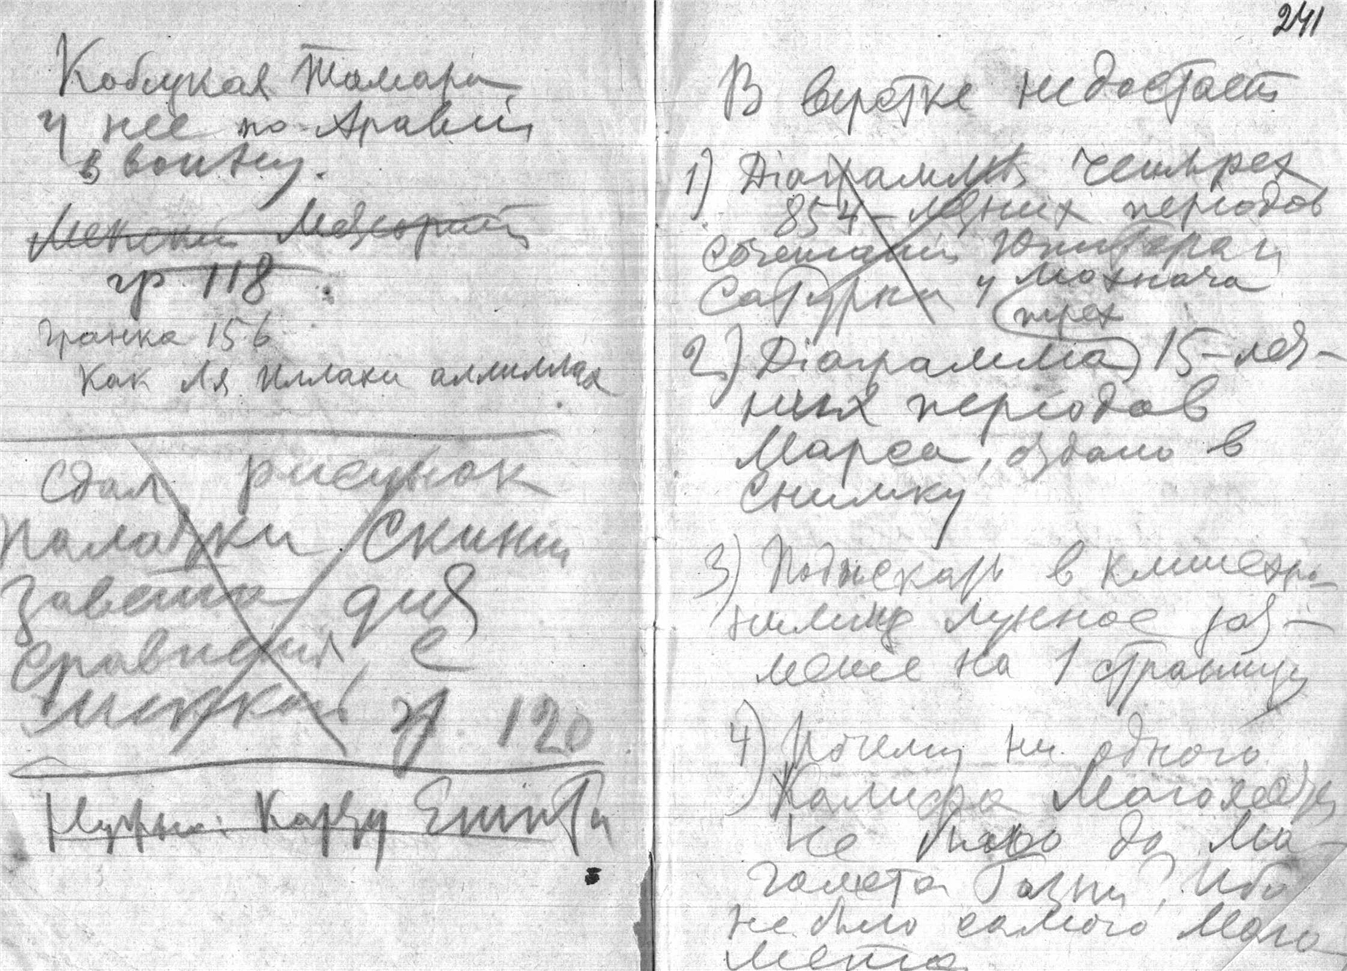 Кобецкая Тамара
у нее по-Аравии
в воину.
гр 118
Гранка 156
Как Ля Иллаки аллиллах
Сдал рисунок
Палатки Скинии
Завета для
Сравнения с
гр. 120
Нужна Карту Египта
241
В верстке недостает
1) Діаграммы четырех
854-летних періодов
Сочетаний Юпитера и
Сатурна у Мохнача
трех
2) Діаграмма 15-лет-
них періодов
Марса, отдано в
снимку
3) Подыскать в клишехра-
нилище лунное зат-
мение на 1 страницу
4) Почему ни одного
Калифа Магомеда
не было до Ма-
гомета Газни? Ибо
не было самого Маго
мета